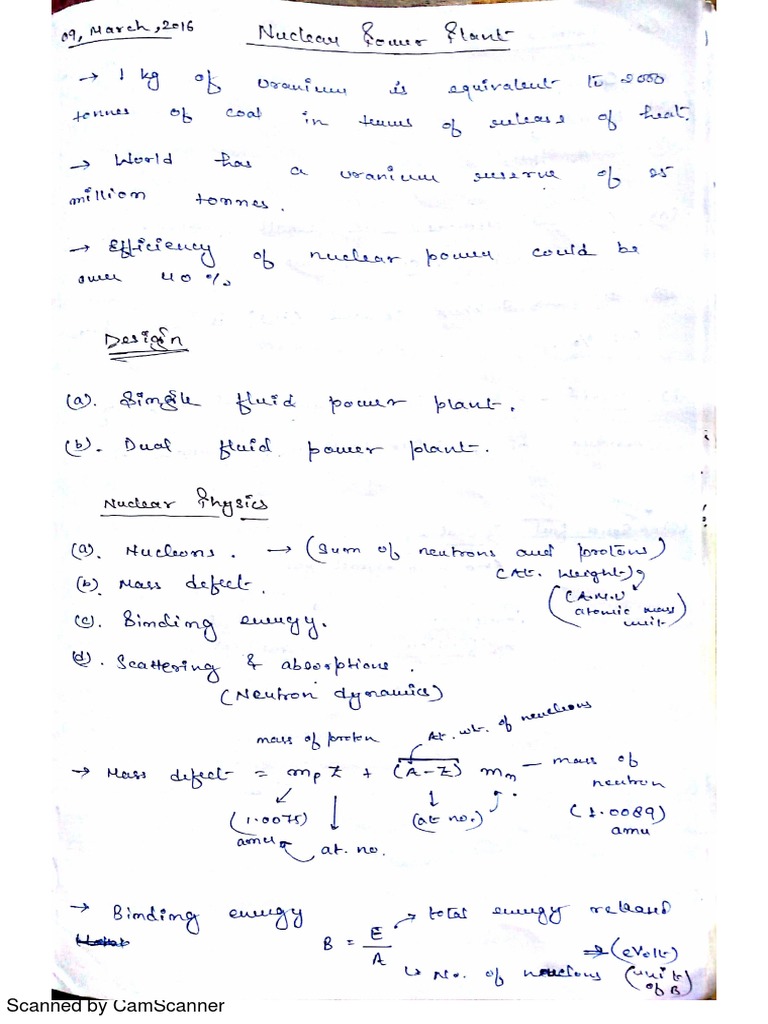 09, March, 2016
Nuclear Power Plant
→ 1 kg of uranium is equivalent to 2000
tonnes of coal in terms of release of heat.
→ World has a uranium reserve of 25
million tonnes.
→ Efficiency of nuclear power could be
over 40 %
Design
(a). Single fluid power plant.
(b). Dual fluid power plant.
Nuclear Physics
(a). Nucleons. → (Sum of neutrons and protons)
(At. weight)
(b). Mass defect.
(A.M.U
atomic mass
unit)
(c). Binding energy.
(d). Scattering & absorptions.
(Neutron dynamics)
mass of proton
At. wt. of neucleons
→ Mass defect = mp Z + (A-Z) mn — mass of
neutron
(1.0075)
amu
at. no.
(at no.)
(1.0089)
amu
→ Binding energy
B = E/A
→ total energy released
⇒ (eVolt)
↳ No. of neucleons
(unit
of B)
Scanned by CamScanner